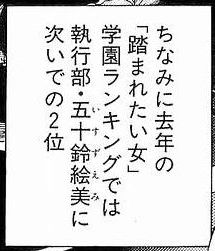 ちなみに去年の
「踏まれたい女」
学園ランキングでは
執行部・五十鈴絵美に
次いでの2位
いすずえみ